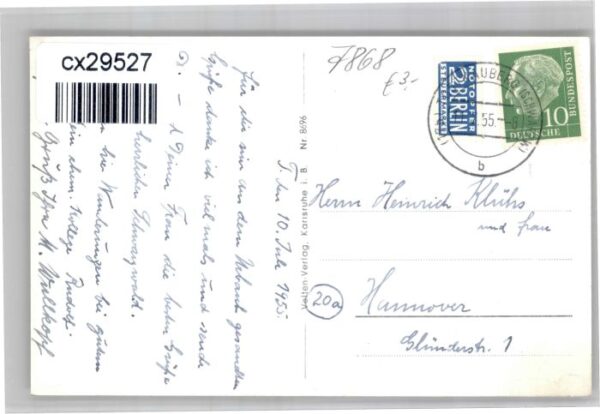 cx29527
7868
€ 3.-
NOTOPFER
2 BERLIN
STEUERMARKE
10
DEUTSCHE
BUNDESPOST
55.-8
b
Für die mir aus dem Urlaub gesandten
Grüße danke ich vielmals und sende
Frau die besten Grüße
herrlichen Schwarzwald.
Wanderungen bei gutem
Kollege Rudolf.
Gruß Ihr A. Wallkopf
T. den 10. Juli 1955.
Velten-Verlag, Karlsruhe i. B. Nr 8096
Herrn Heinrich Klühs
und Frau
20a
Hannover
Glünderstr. 1